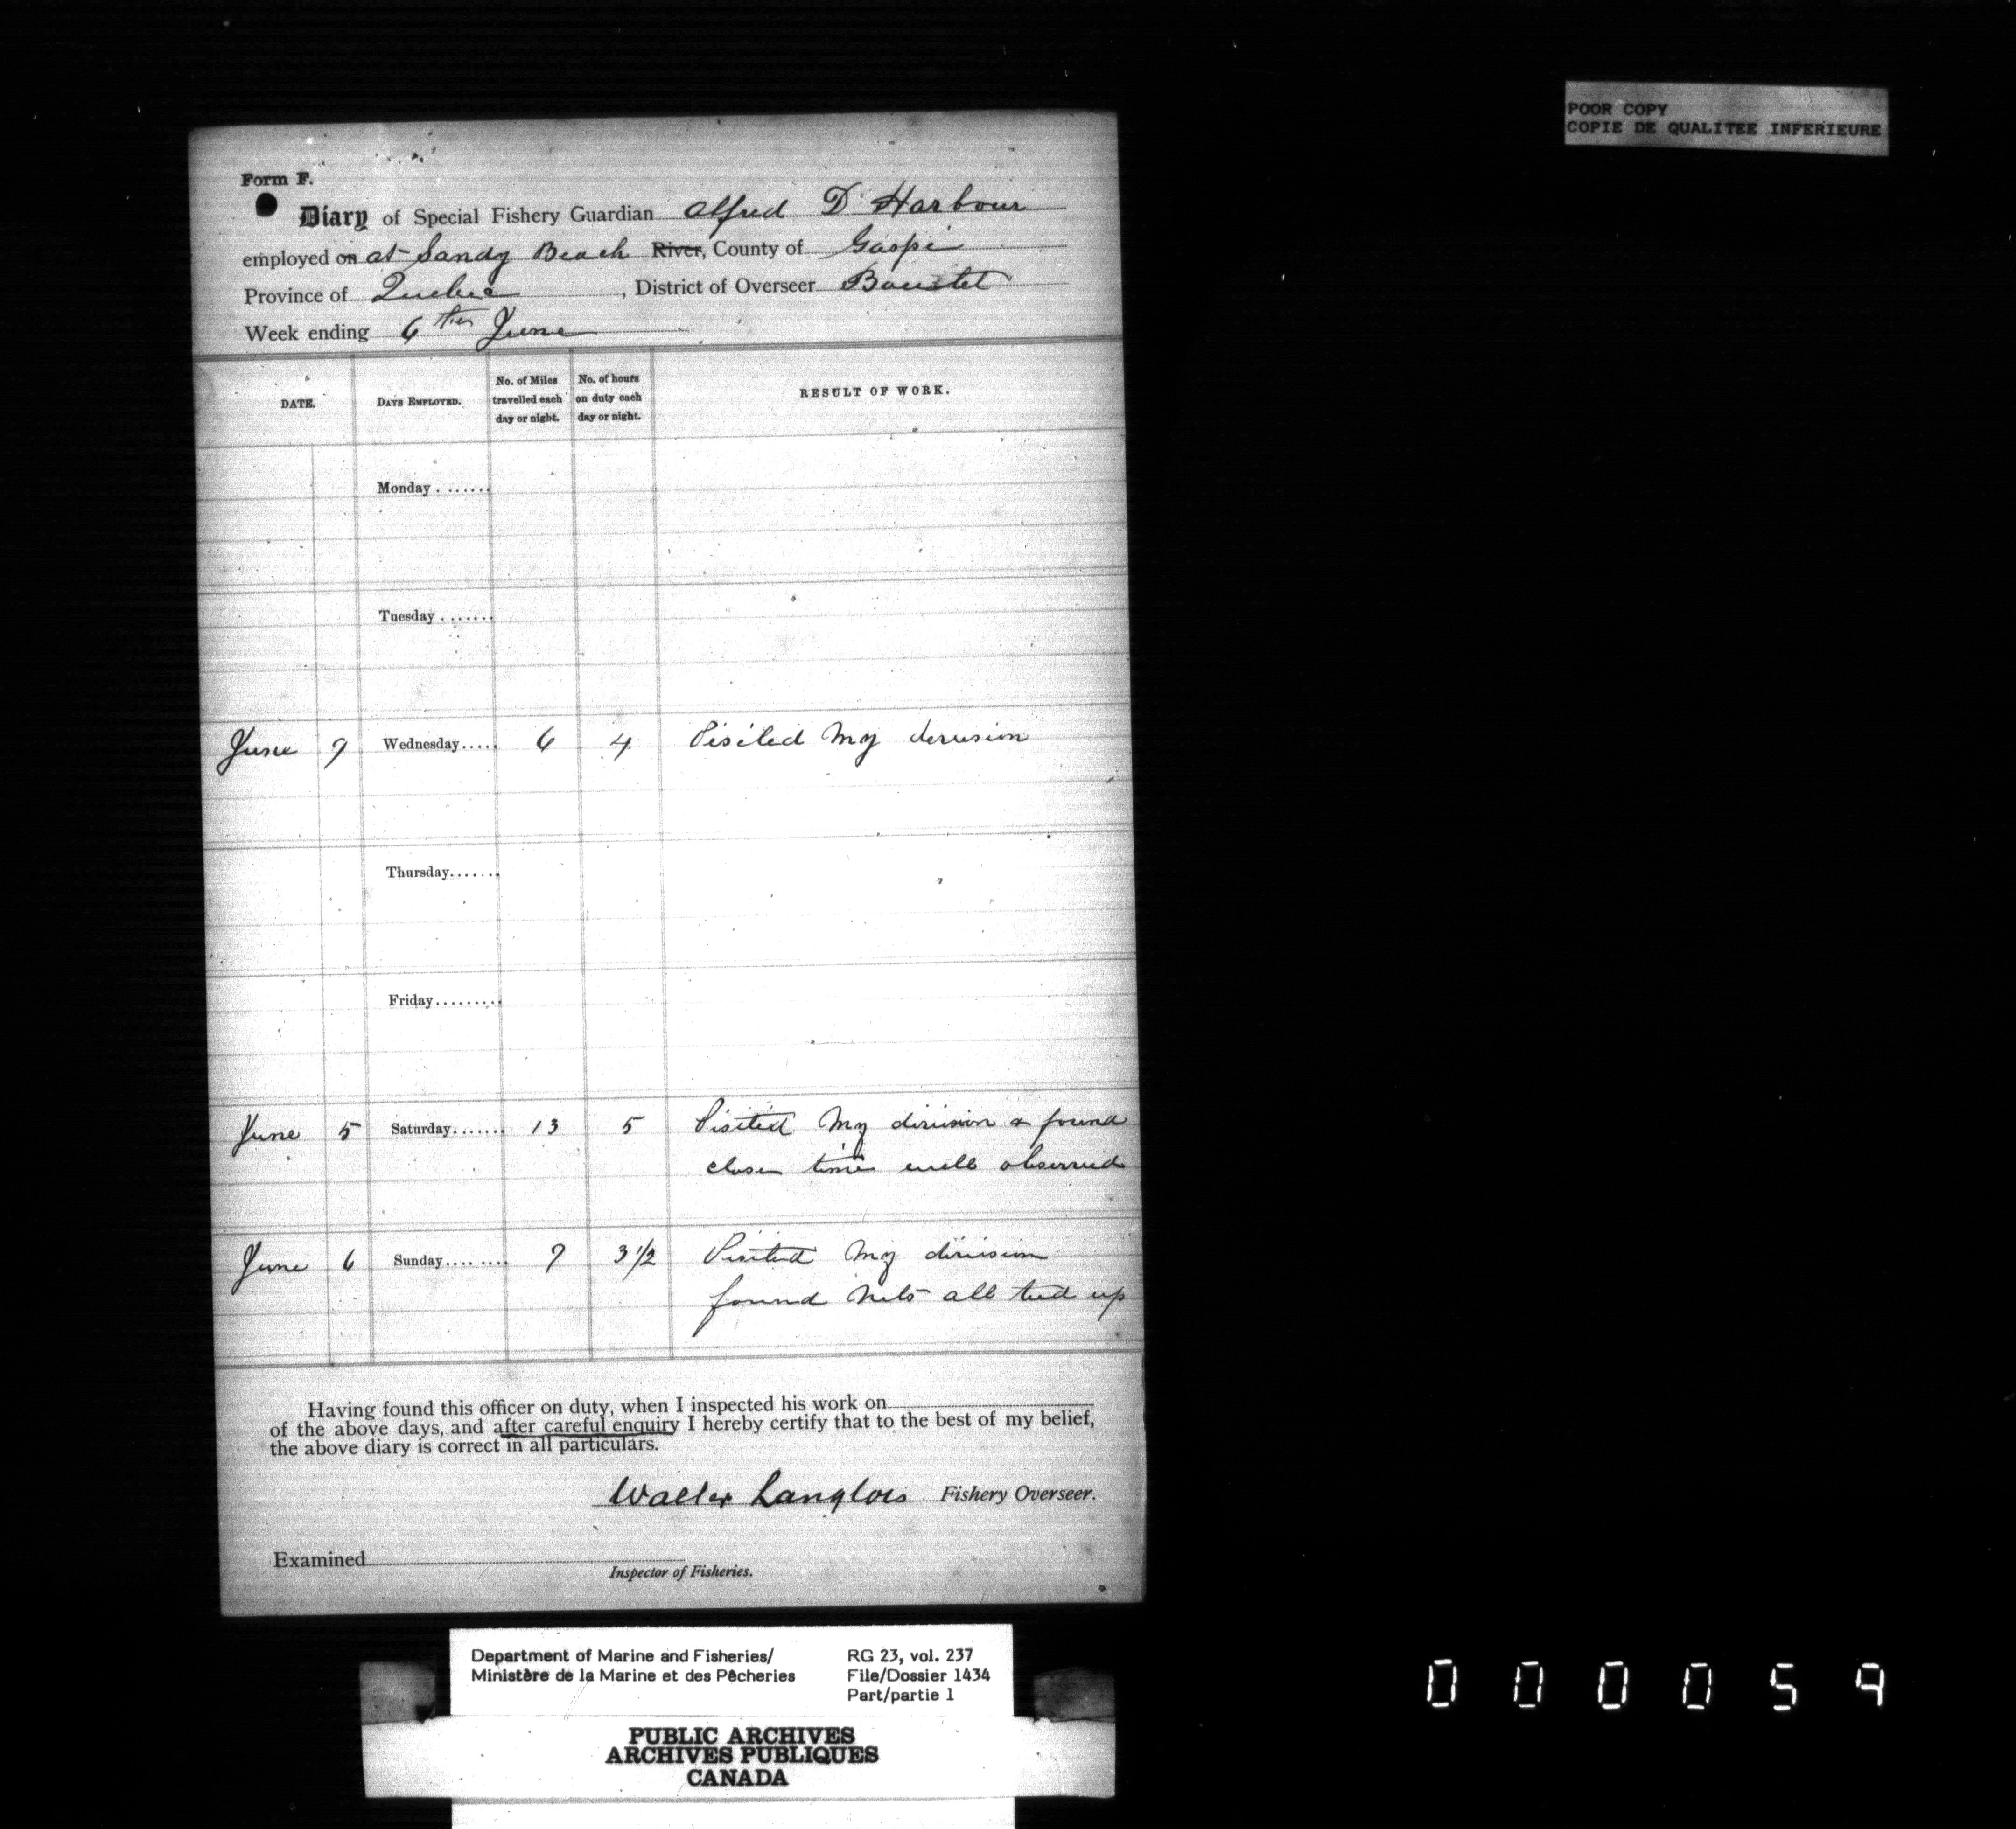 POOR COPY
COPIE DE QUALITEE INFERIEURE
Form F.
Diary of Special Fishery Guardian Alfred D Harbour
employed on at Sandy Beach River, County of Gaspé
Province of Quebec, District of Overseer
Week ending 6th June
DATE. DAYS EMPLOYED. No. of Miles travelled each day or night. No. of hours on duty each day or night. RESULT OF WORK.
Monday.......
Tuesday.......
June 7 Wednesday..... 6 4 Visited My division
Thursday.......
Friday.........
June 5 Saturday....... 13 5 Visited My division & found
close time well observed
June 6 Sunday........ 7 3 1/2 Visited My division
found Nets all tied up
Having found this officer on duty, when I inspected his work on
of the above days, and after careful enquiry I hereby certify that to the best of my belief,
the above diary is correct in all particulars.
Walter Langlois Fishery Overseer.
Examined
Inspector of Fisheries.
Department of Marine and Fisheries/ RG 23, vol. 237
Ministère de la Marine et des Pêcheries File/Dossier 1434
Part/partie 1
PUBLIC ARCHIVES
ARCHIVES PUBLIQUES
CANADA
000059